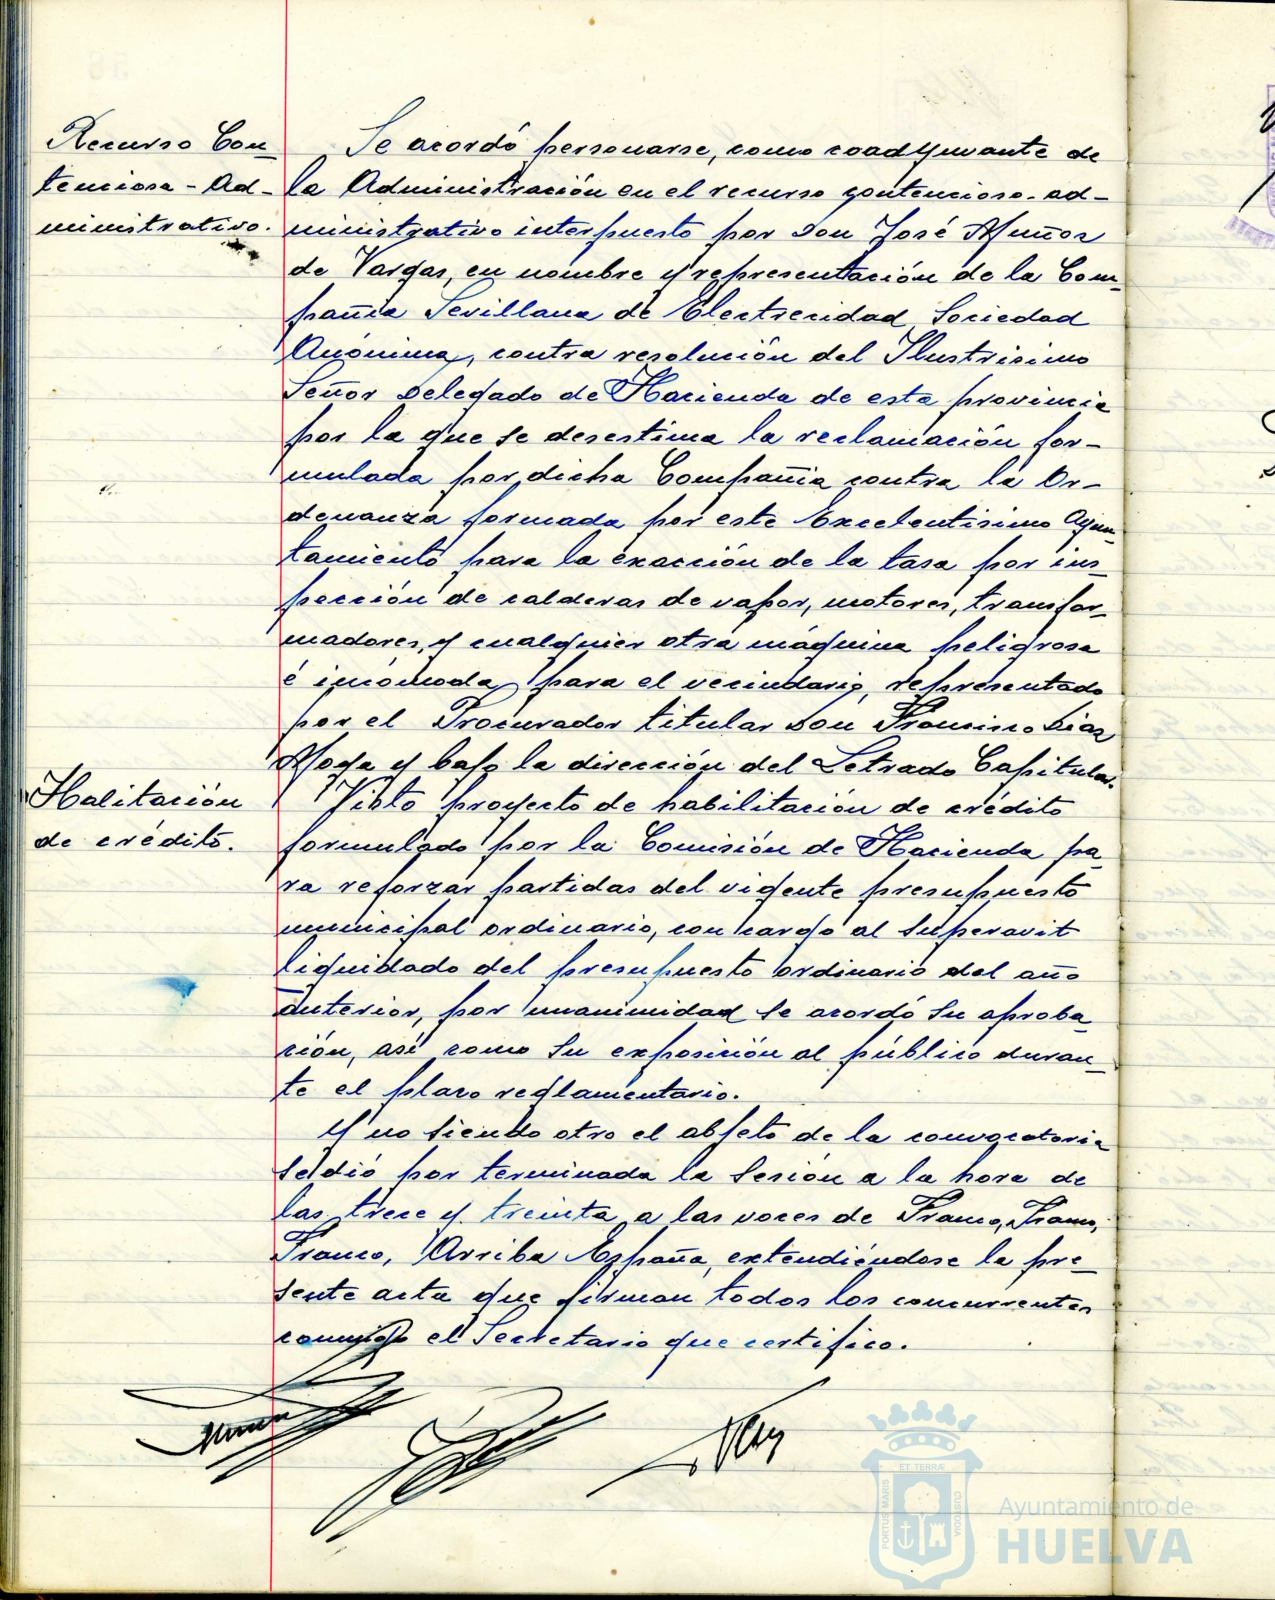 Recurso Con-
tencioso-Ad-
ministrativo.
Se acordó personarse, como coadyuvante de
la Administración en el recurso contencioso-ad-
ministrativo interpuesto por Don José Muñoz
de Vargas, en nombre y representación de la Com-
pañía Sevillana de Electricidad Sociedad
Anónima, contra resolución del Ilustrísimo
Señor Delegado de Hacienda de esta provincia
por la que se desestima la reclamación for-
mulada por dicha Compañía contra la Or-
denanza formada por este Excelentísimo Ayun-
tamiento para la exacción de la tasa por ins-
pección de calderas de vapor, motores, transfor-
madores, y cualquier otra máquina peligrosa
é incómoda para el vecindario, representado
por el Procurador titular Don Francisco Díaz
Moya y bajo la dirección del Letrado Capitular.
Halitación
de crédito.
Visto proyecto de habilitación de crédito
formulado por la Comisión de Hacienda pa-
ra reforzar partidas del vigente presupuesto
municipal ordinario, con cargo al superavit
liquidado del presupuesto ordinario del año
anterior, por unanimidad se acordó su aproba-
ción, asi como su exposición al público duran-
te el plazo reglamentario.
Y no siendo otro el objeto de la convocatoria
se dió por terminada la sesión a la hora de
las trece y treinta a las voces de Franco, Franco,
Franco, Arriba España, extendiéndose la pre-
sente acta que firman todos los concurrentes
conmigo el Secretario que certifico.
PORTUS MARIS
ET TERRÆ
CUSTODIA
Ayuntamiento de
HUELVA